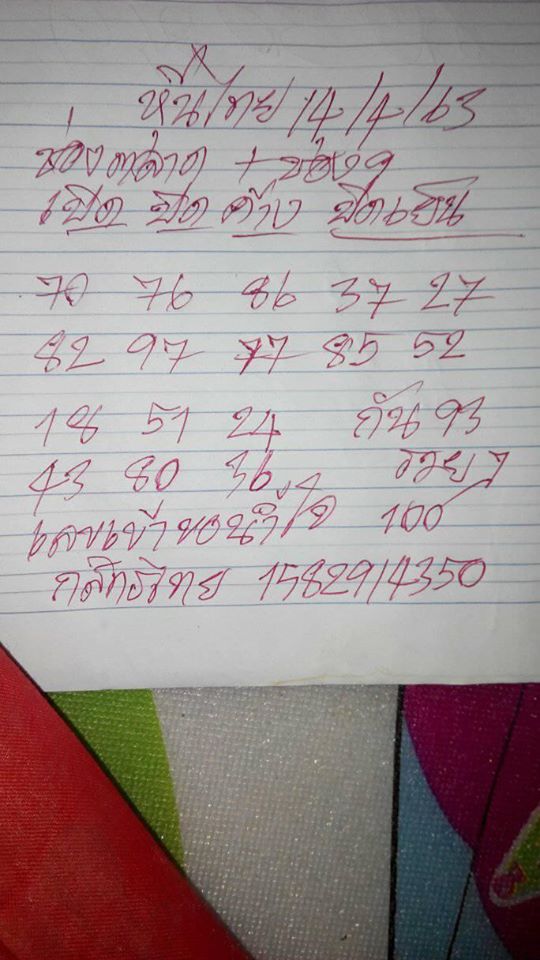 หุ้นไทย 14/4/63
ช่องตลาด + ช่อง 9
เปิด ปิด ค้าง ปิดเย็น
70 76 86 37 27
82 97 77 85 52
18 51 24 กัน 93
43 80 36 รวยๆ
เลขเข้าขอน้ำใจ 100
กสิกรไทย 1582914350